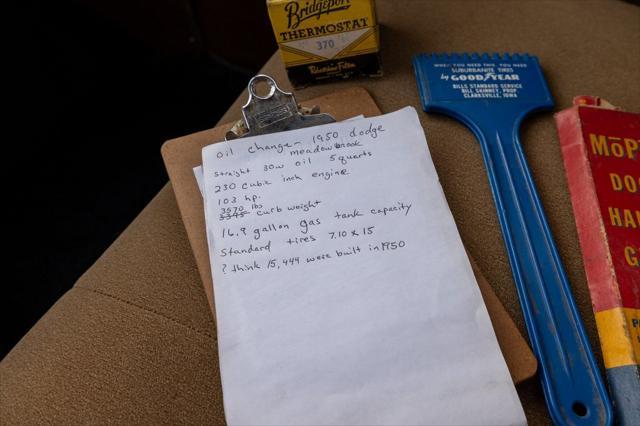 Bridgeport
THERMOSTAT
370
WHEN YOU NEED THIS, YOU NEED
SUBURBANITE TIRES
by GOODYEAR
BILLS STANDARD SERVICE
BILL SKINNEY, PROP
CLARKSVILLE, IOWA
MOP
DO
HA
G
oil change - 1950 dodge
meadowbrook
straight 30w oil 5 quarts
230 cubic inch engine
103 hp.
3570 lbs
3345 curb weight
16.9 gallon gas tank capacity
Standard tires 7.10 x 15
? think 15,444 were built in 1950